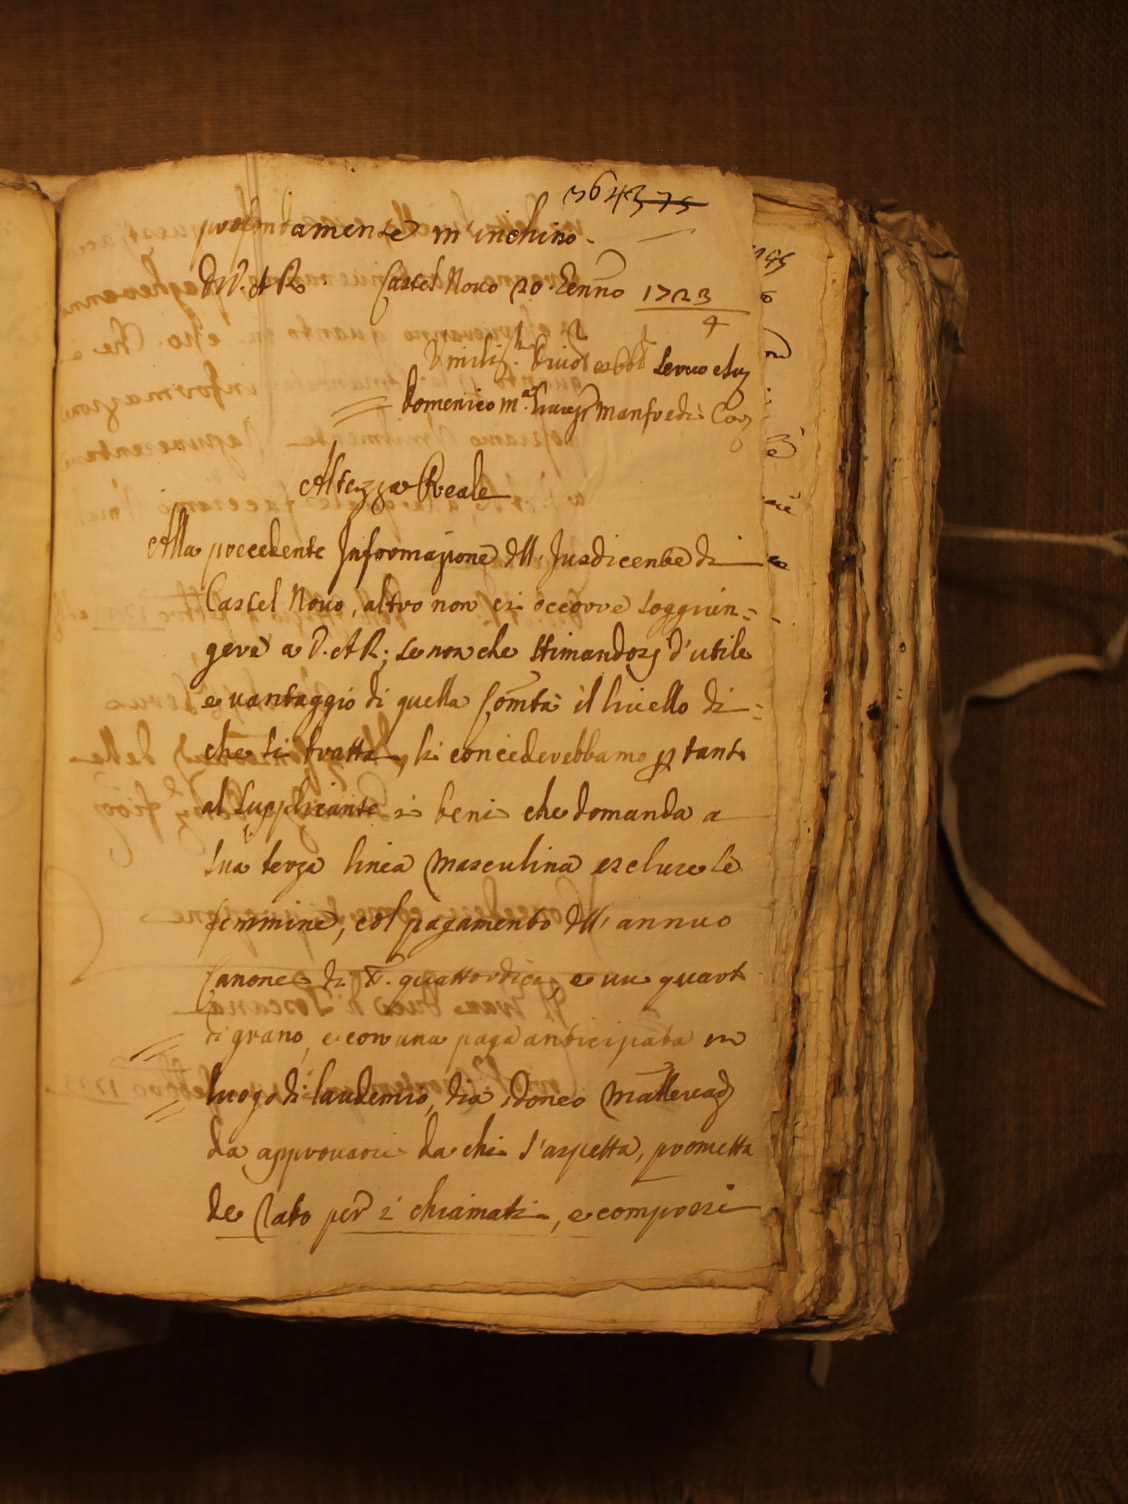 364 375
profondamente m'inchino.
D.V.A.R. Castel Novo 20. Genn.o 1723/4
Umiliss.mo Servo e Sud
Domenico M.a Manfredi
Altezza Reale
Alla precedente Informazione dell' Jusdicente di
Castel Novo, altro non ci occorre soggiun=
gere a V.A.R; se non che stimandosi d'utile
e vantaggio di quella Com.tà il livello di=
che si tratta, li concederebbamo p tanto
al Supplicante i beni che domanda a
sua terza linea Masculina escluse le
femmine, col pagamento dell' annuo
Canone di quattordici, e un quarto
di grano, e con una paga anticipata in
luogo di laudemio, dia Idoneo Mallevad
da approvarsi da chi s'aspetta, prometta
de Rato per i chiamati, e compresi